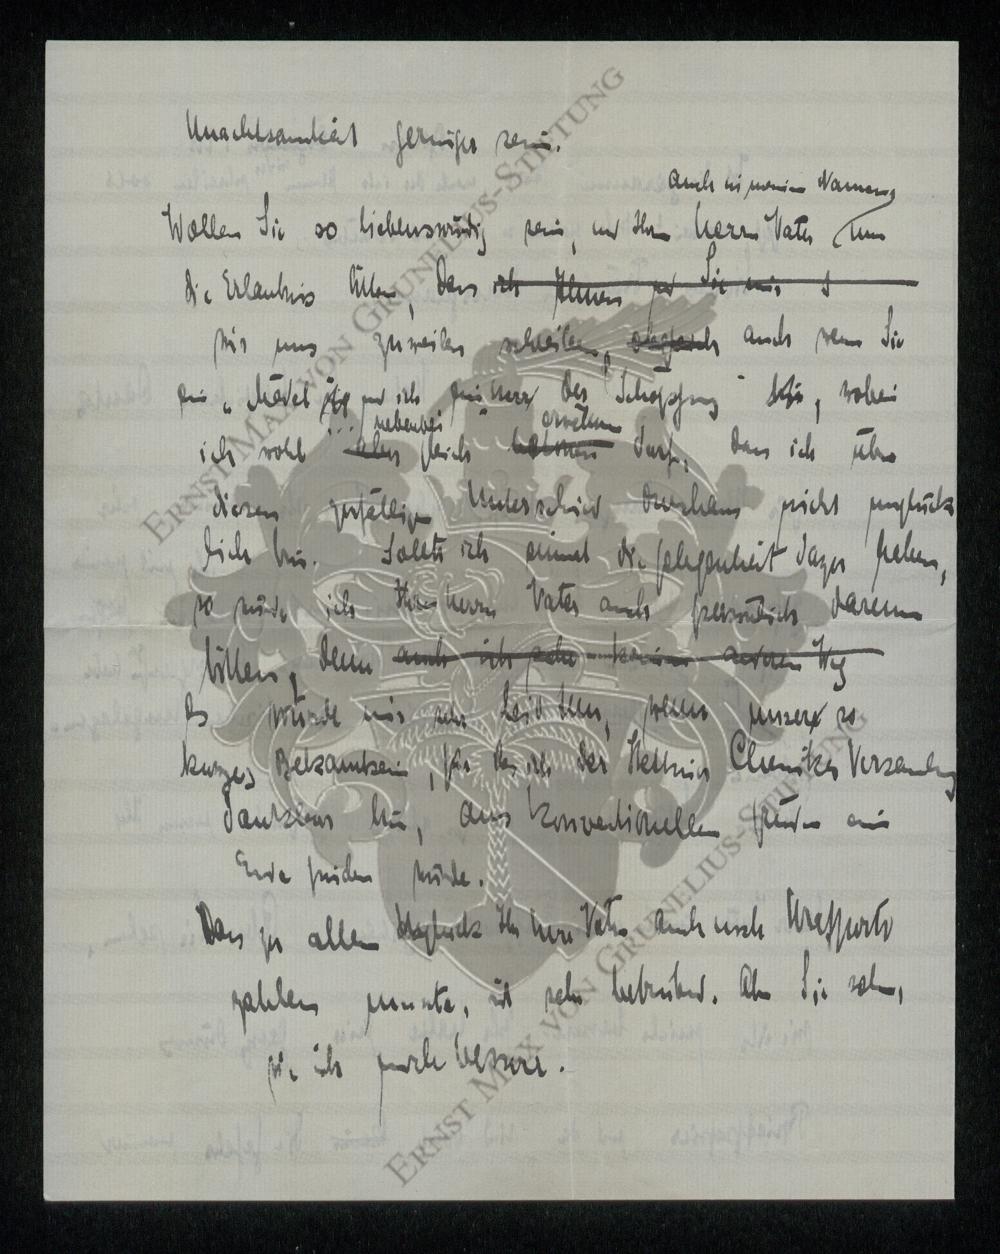 Unachtsamkeit genüge sein.
auch in meinem Namen,
Wollen Sie so liebenswürdig sein, und Ihren Herrn Vater um
die Erlaubnis bitten, dass ich Ihnen Sie mir
wir uns zuweilen schreiben, obgleich auch wenn Sie
ein „Mädel“ und ich ein „Herr der Schöpfung“ bin, wobei
nebenbei erwähnen
ich wohl aber gleich betonen darf, dass ich über
diesen zufälligen Unterschied durchaus nicht unglück
lich bin. Sollte ich einmal die Gelegenheit dazu haben,
so würde ich Ihren Herrn Vater auch persönlich darum
bitten, denn auch ich sehe keinen anderen Weg
Es würde mir sehr leid tun, wenn unsere so
kurzes Bekanntsein, für das ich der Stettiner Chemiker Versammlung
dankbar bin, aus konventionellen Gründen ein
Ende finden würde.
Dass zu allem Unglück Ihr Herr Vater auch noch Strafporto
zahlen musste, ist sehr betrübend. Aber Sie sehen,
wie ich mich bessere.
ERNST MAX VON GRUNELIUS-STIFTUNG
ERNST MAX VON GRUNELIUS-STIFTUNG